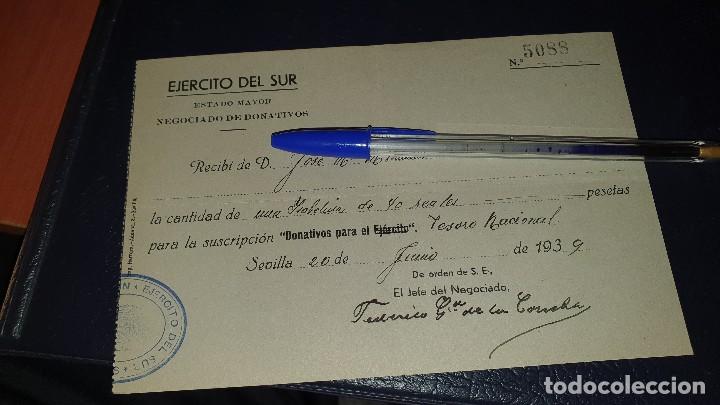 5088
N.º
EJERCITO DEL SUR
ESTADO MAYOR
NEGOCIADO DE DONATIVOS
Recibí de D. José M.
la cantidad de una Isabelina de 40 reales pesetas
para la suscripción "Donativos para el Ejército". Tesoro Nacional
Sevilla 20 de Junio de 1939
De orden de S. E.,
El Jefe del Negociado,
Federico Gª de la Concha
EJERCITO DEL SUR
todocoleccion.net